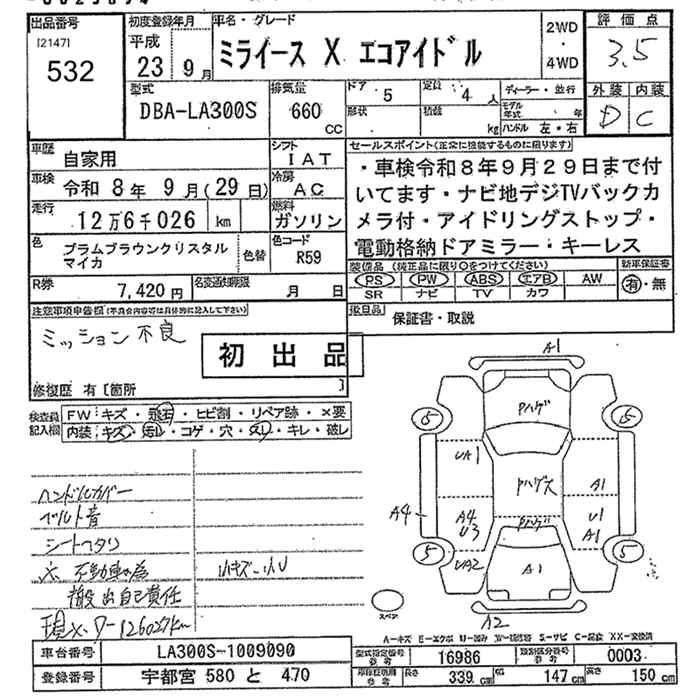 出品番号
[2147]
532
初度登録年月
平成
23 9月
車名・グレード
ミライース X エコアイドル
2WD
・
4WD
評価点
3.5
外装 内装
D C
型式
DBA-LA300S
排気量
660
CC
ドア 5
定員 4人
形状
積載 kg
ディーラー・並行
モデル年式 年
ハンドル 左・右
車歴 自家用
シフト IAT
車検 令和 8年 9月(29日)
冷房 AC
走行 12万6千026 km
燃料 ガソリン
色 プラムブラウンクリスタル
マイカ
色替
色コード R59
R券 7,420円
名変通知期限 月 日
セールスポイント(正常に機能するものに限ります)
・車検令和8年9月29日まで付
いてます・ナビ地デジTVバックカ
メラ付・アイドリングストップ・
電動格納ドアミラー・キーレス
装備品(純正品に限り○をつけてください)
PS PW ABS エアB AW
SR ナビ TV カワ
新車保証書
有・無
後日品 保証書・取説
注意事項申告欄(不具合内容等は具体的に記入して下さい)
ミッション不良
初出品
修復歴 有[箇所 ]
検査員
記入欄
FW:キズ・飛石・ヒビ割・リペア跡・×要
内装:キズ・汚レ・コゲ・穴・スレ・キレ・破レ
ハンドルカバー
ベルト音
シートヘタリ
※ 不動車の為
搬出自己責任
現メーター126027km
小キズ・小U
A1
5 5
Pハゲ
UA1
Pハゲス
A1
A4
A4
U3
Pハゲ
U1
A1
5 5
UA2
A1
A2
スペア
A-キズ E-エクボ U-凹み W-補修跡 S-サビ C-腐食 XX-交換済
車台番号 LA300S-1009090
登録番号 宇都宮 580 と 470
型式指定番号
参考
16986
類別区分番号
参考
0003
車検証明
参考
長さ 339 cm
幅 147 cm
高さ 150 cm